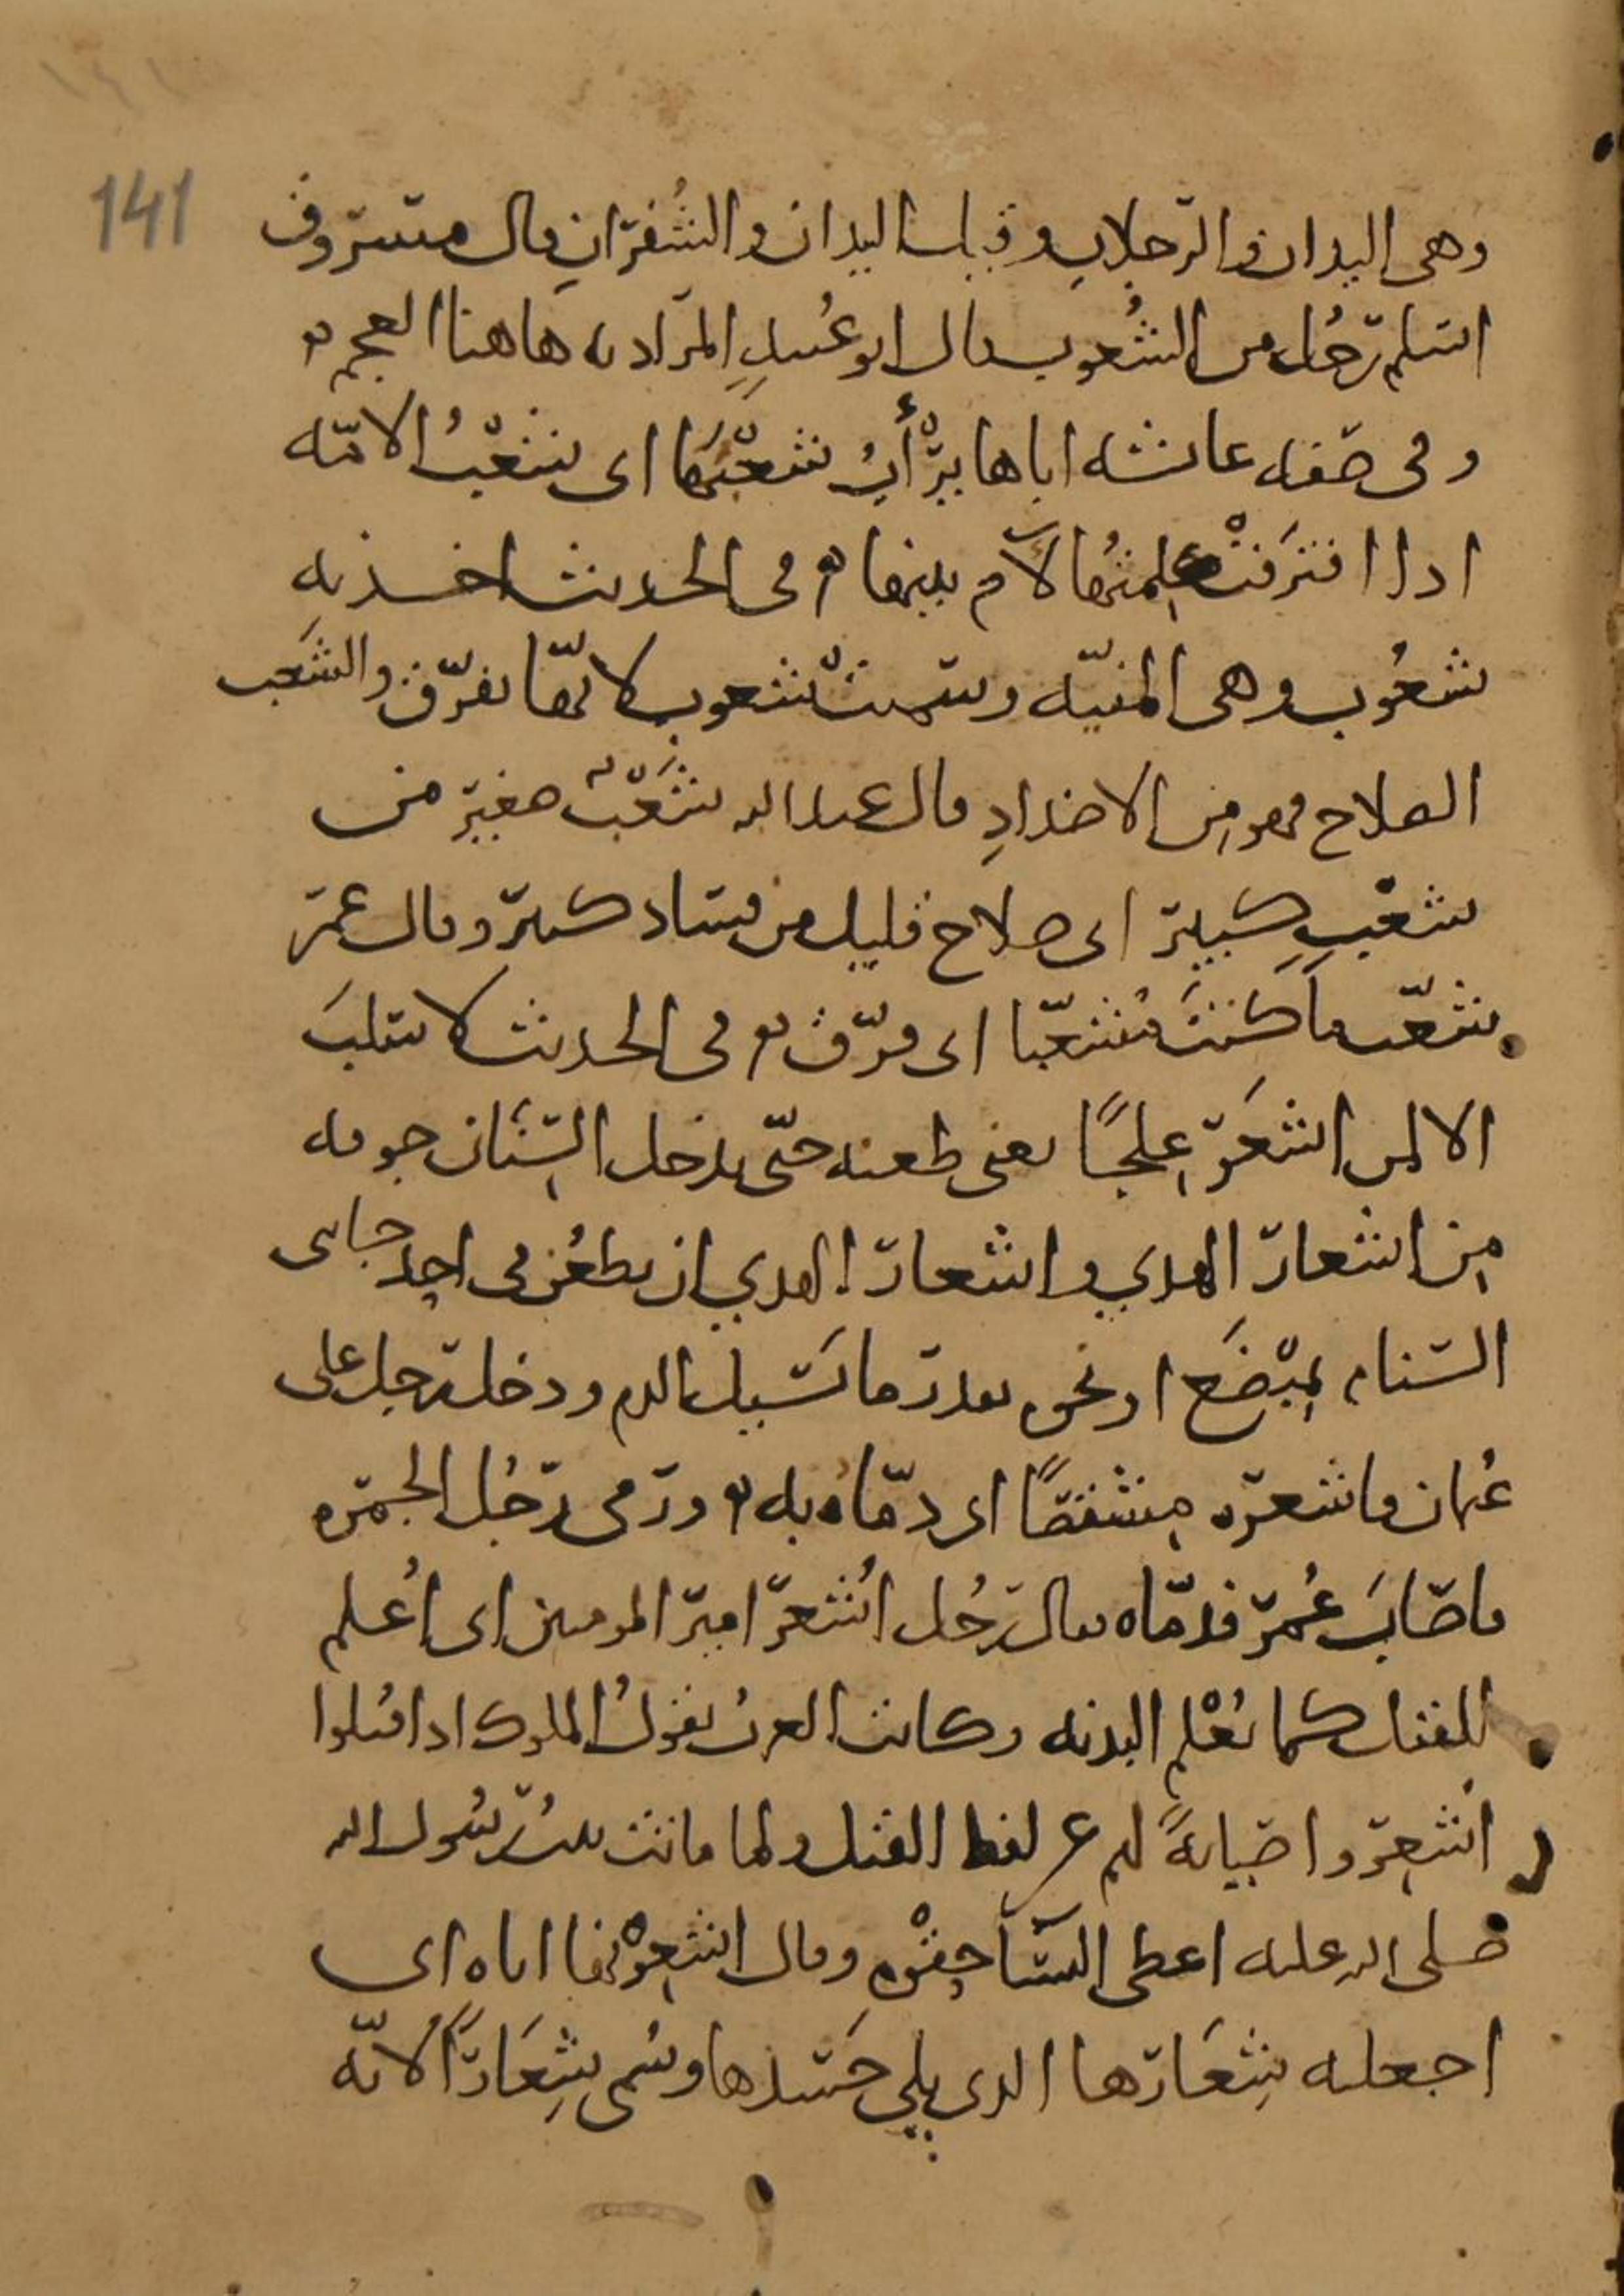 141
وهى اليدان والرّجلانِ وقيل اليدان والشُفرَانِ قال مسروق
اسلم رَجُل من الشُعوب قال ابو عُبيدٍ المراد به هاهنا العجم ه
وفى صفه عائشه اباها يرْأَبُ شعْبَها اى شعْبُ الامّه
اذا افترقتْ كلمتُها لآم بينها ه فى الحديث اخذته
شعُوب وهى المنيّه وسميتْ شعوب لانّها تفرّق والشَعب
الصلاح فهو من الاضدادِ قال عبد الله شَعْبٌ صغير من
شعْبٍ كبير اى صلاح قليل من فساد كبير وقال عمر
شعّب ما كنتَ مُشعّبا اى فرّق ه وفى الحديث لا سلبَ
الا لمن اشعَر علجًا يعنى طعنه حتّى يدخل السّنَان جوفه
من اشعار الهدي واشعار الهدي ان يطعُن فى احد جانبى
السّنام بمِبْضَع او نحوه بقدر ما يَسيل الدم ودخل رجل على
عثمان فاشعره مِشقصًا اى دمّاه به ه ورمى رَجُل الجمره
فاصَابَ عُمر فدمّاه فقال رَجُل اُشعرَ امير المومنين اى اُعلم
للقتل كما تُعْلم البدنه وكانت العرب تقولُ للملوك اذا قتلوا
اُشعِروا صيانةً لهم عن لفظ القتل ولما ماتت بنتُ رسُول الله
صلى الله عليه اعطى النسآ حِقْوَه وقال اشعِرْنها اياه اى
اجعلنه شِعَارَها الذى يلي جسَدها وسُمى شِعَارًا لانّه